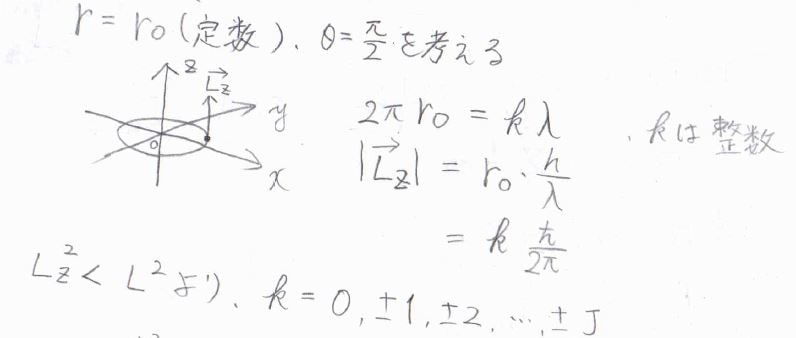 r = r₀ (定数)、θ = π/2 を考える
z
L⃗z
y
O
x
2πr₀ = kλ 、kは整数
|L⃗z| = r₀・h/λ
= k ℏ/2π
Lz² < L² より、k = 0, ±1, ±2, …, ± J